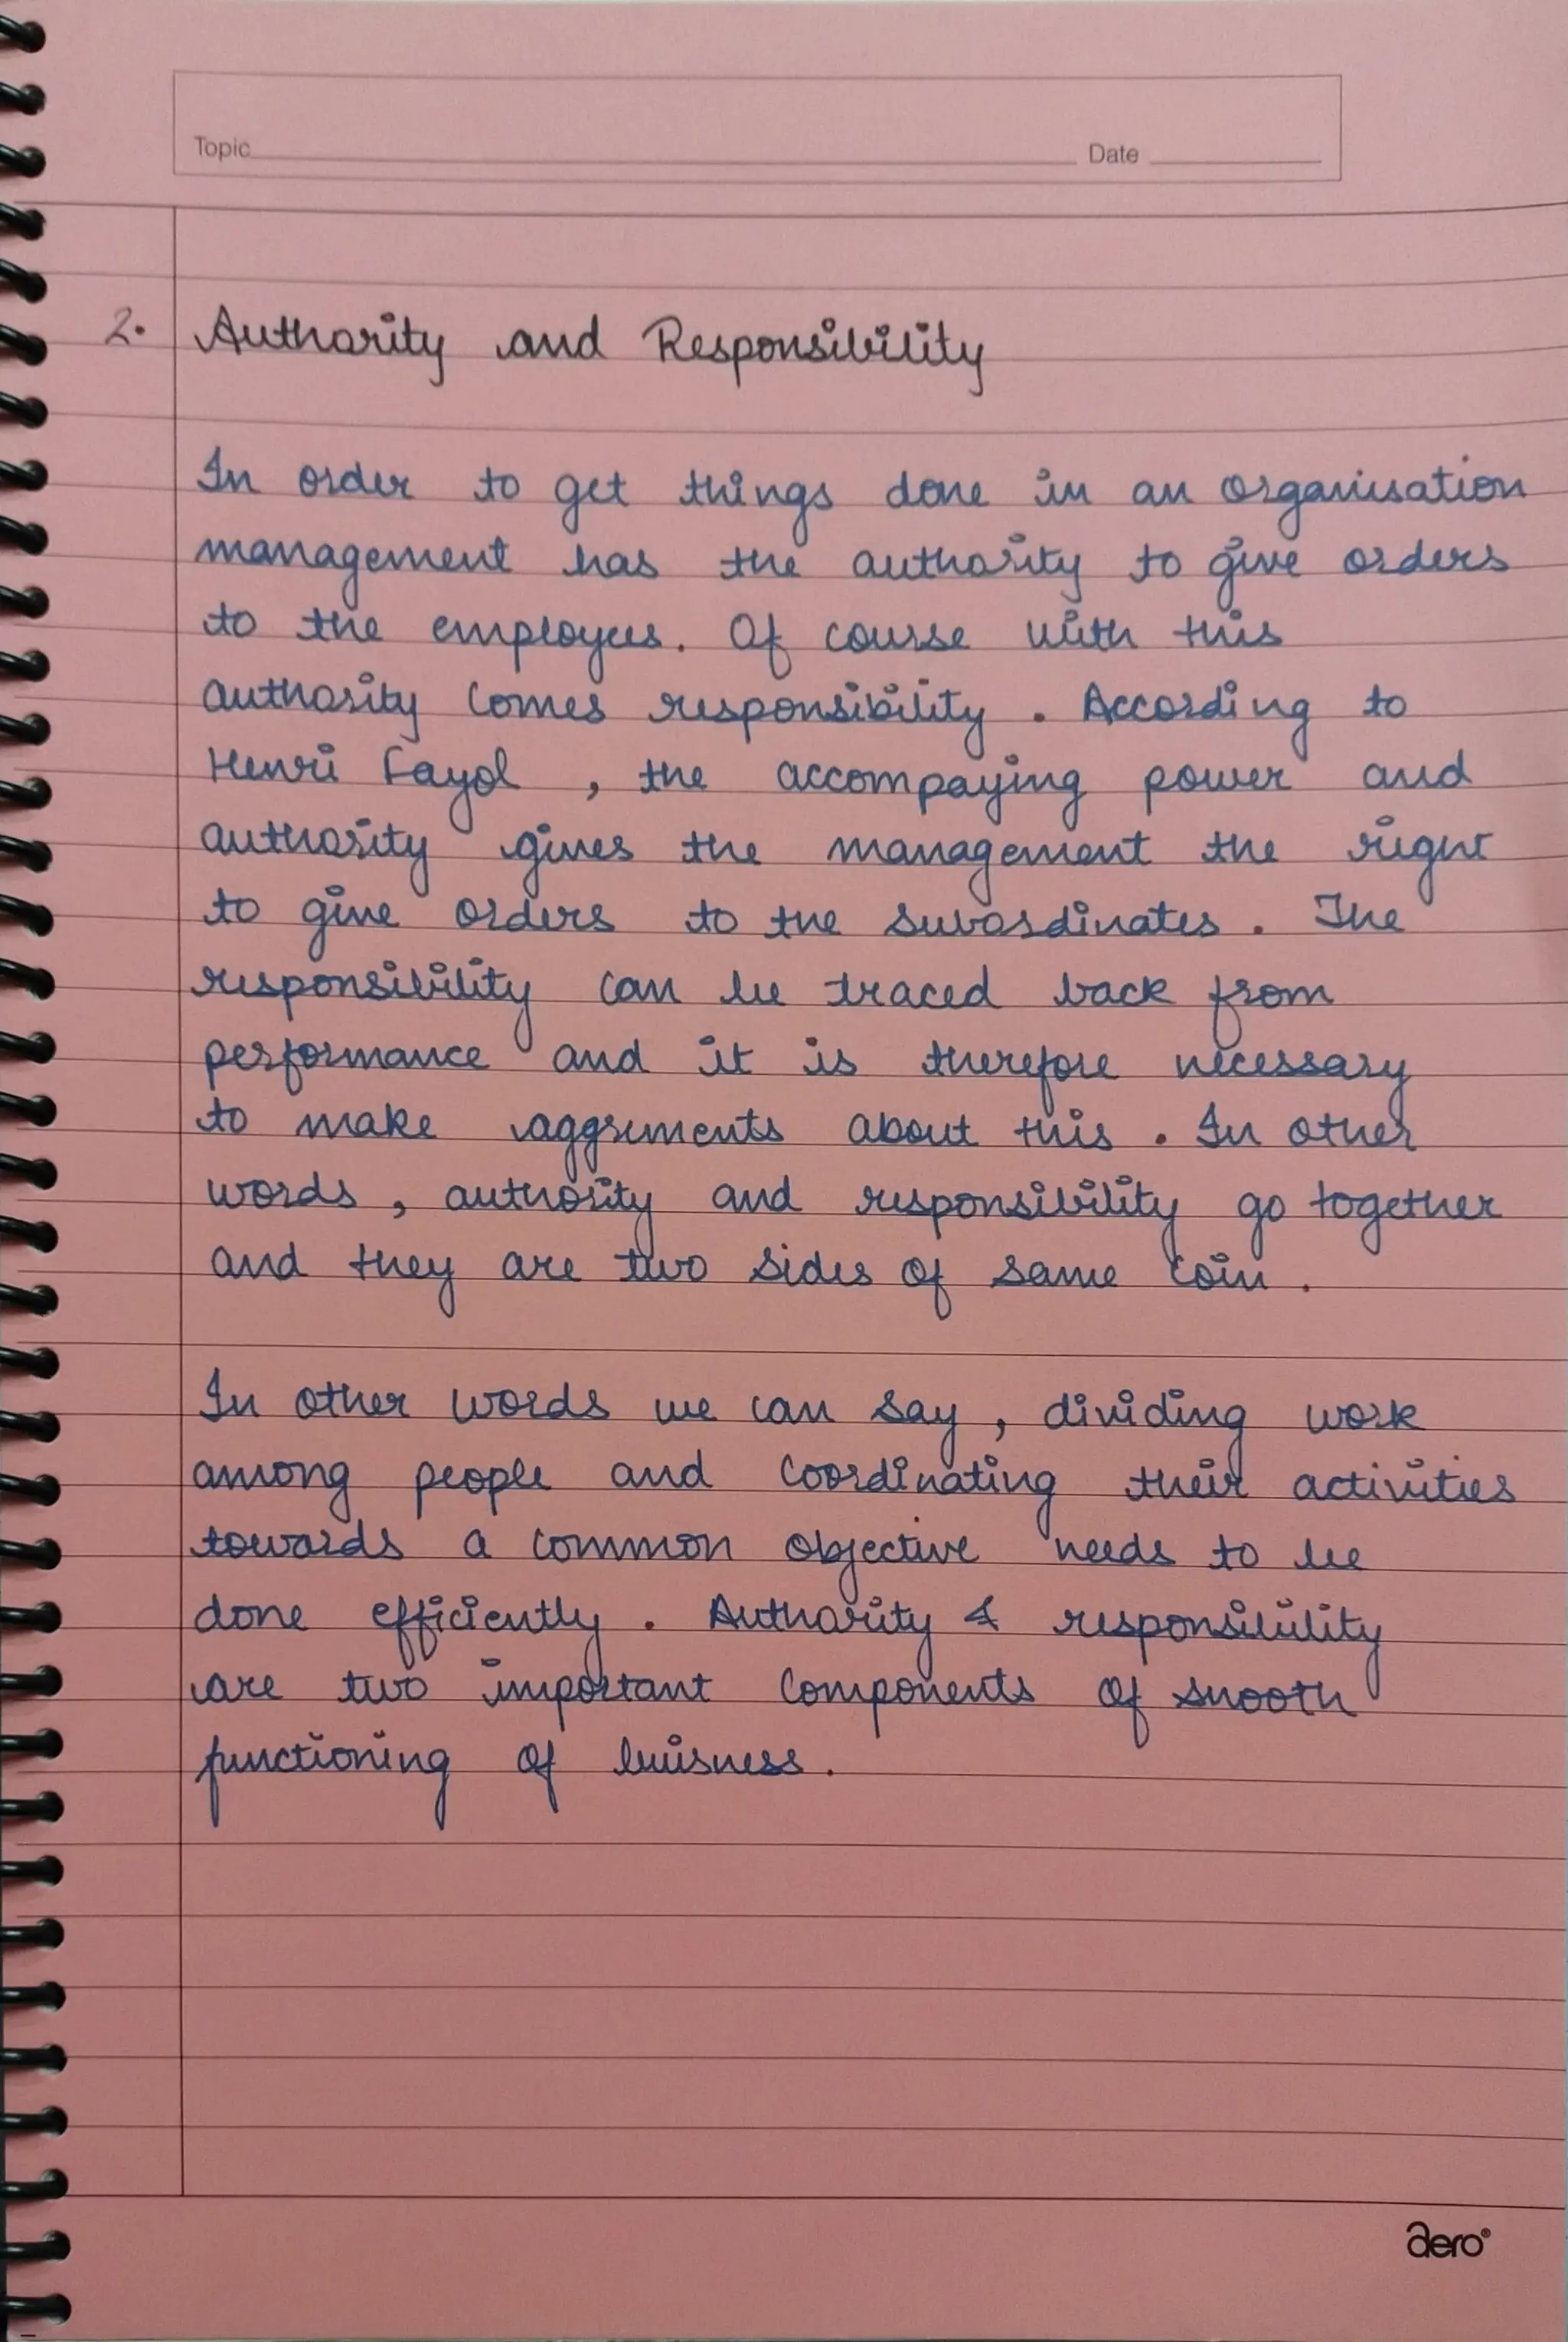 Topic Date
2. Authority and Responsibility
In order to get things done in an organisation
management has the authority to give orders
to the employees. Of course with this
authority comes responsibility . According to
Henri Fayol , the accompaying power and
authority gives the management the right
to give orders to the subordinates . The
responsibility can be traced back from
performance and it is therefore necessary
to make aggrements about this . In other
words , authority and responsibility go together
and they are two sides of same coin .
In other words we can say , dividing work
among people and coordinating their activities
towards a common objective needs to be
done efficiently . Authority & responsibility
are two important components of smooth
functioning of buisness .
aero